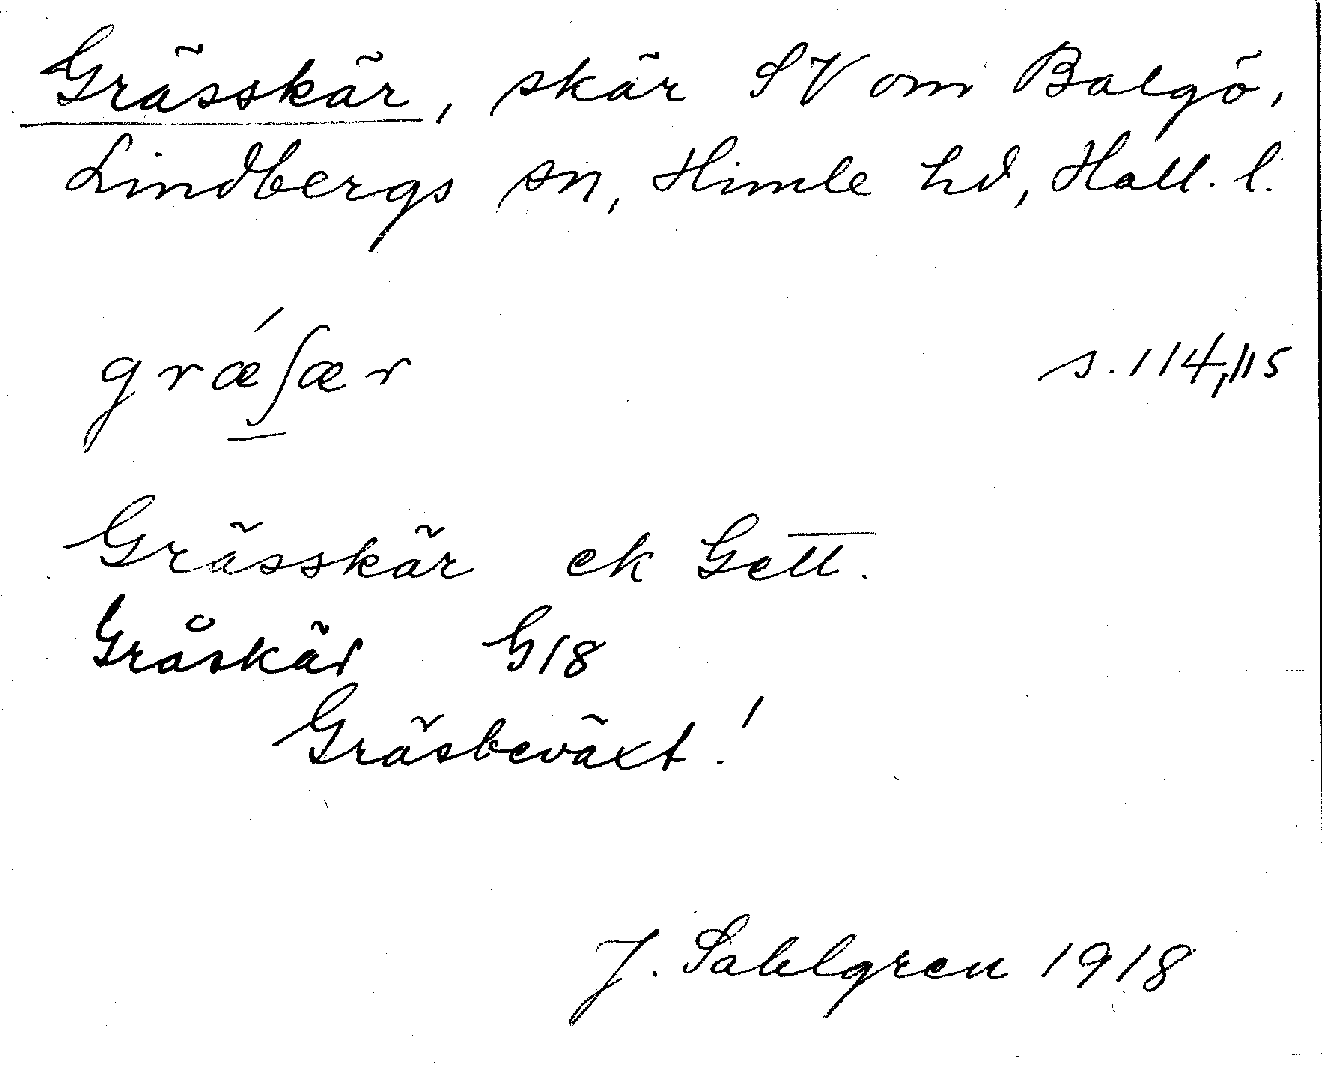 Grässkär, skär SV om Balgö,
Lindbergs sn, Himle hd, Hall. l.
grǽʃær s. 114, 115
Grässkär ek Gett.
Gråskär G18
Gräsbeväxt!
J. Sahlgren 1918